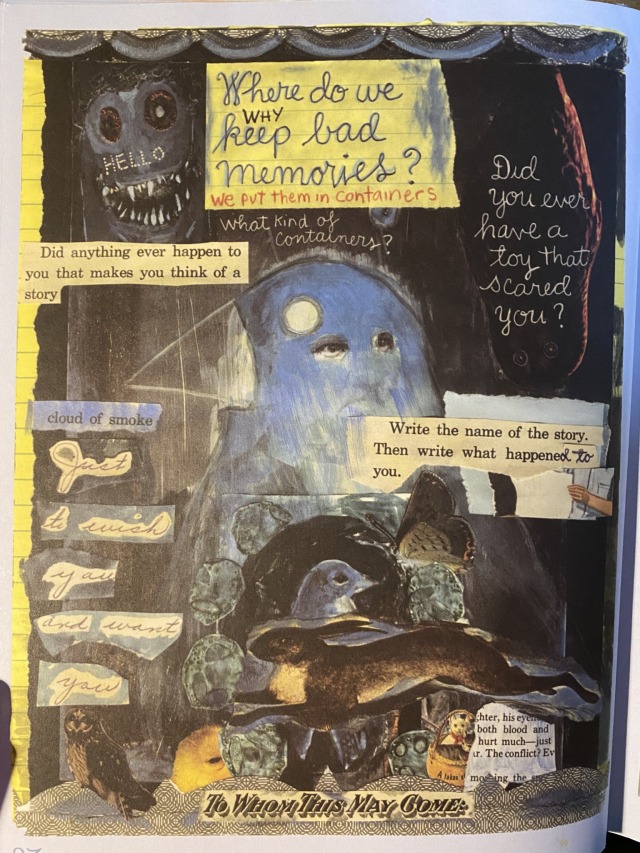 Where do we
WHY
keep bad
memories?
We put them in containers
What kind of
Containers?
HELLO
Did
you ever
have a
toy that
scared
you?
Did anything ever happen to
you that makes you think of a
story
cloud of smoke
Just
to wish
you
and want
you
Write the name of the story.
Then write what happened to
you.
hter, his eye
both blood and
hurt much—just
r. The conflict? Ev
moving the
TO WHOM THIS MAY COME: